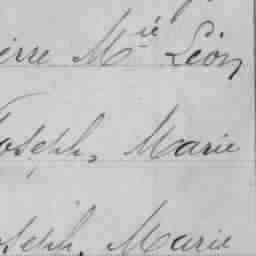 ierre Mie Léon
Joseph, Marie
oseph, Marie